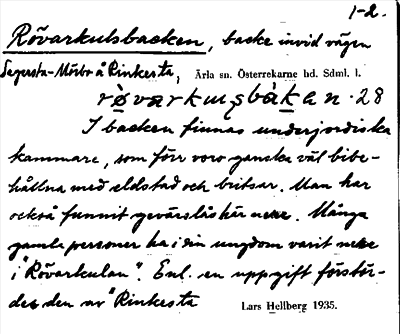 1-2.
Rövarkulsbacken, backe invid vägen
Segersta-Mörby å Rinkesta, Ärla sn. Österrekarne hd. Sdml. l.
I backen finnas underjordiska
kammare, som förr voro ganska väl bibe-
hållna med eldstad och britsar. Man har
också funnit gevärslås här nere. Många
gamla personer ha i sin ungdom varit nere
i "Rövarkulan". Enl. en uppgift förstör-
des den av Rinkesta
Lars Hellberg 1935.